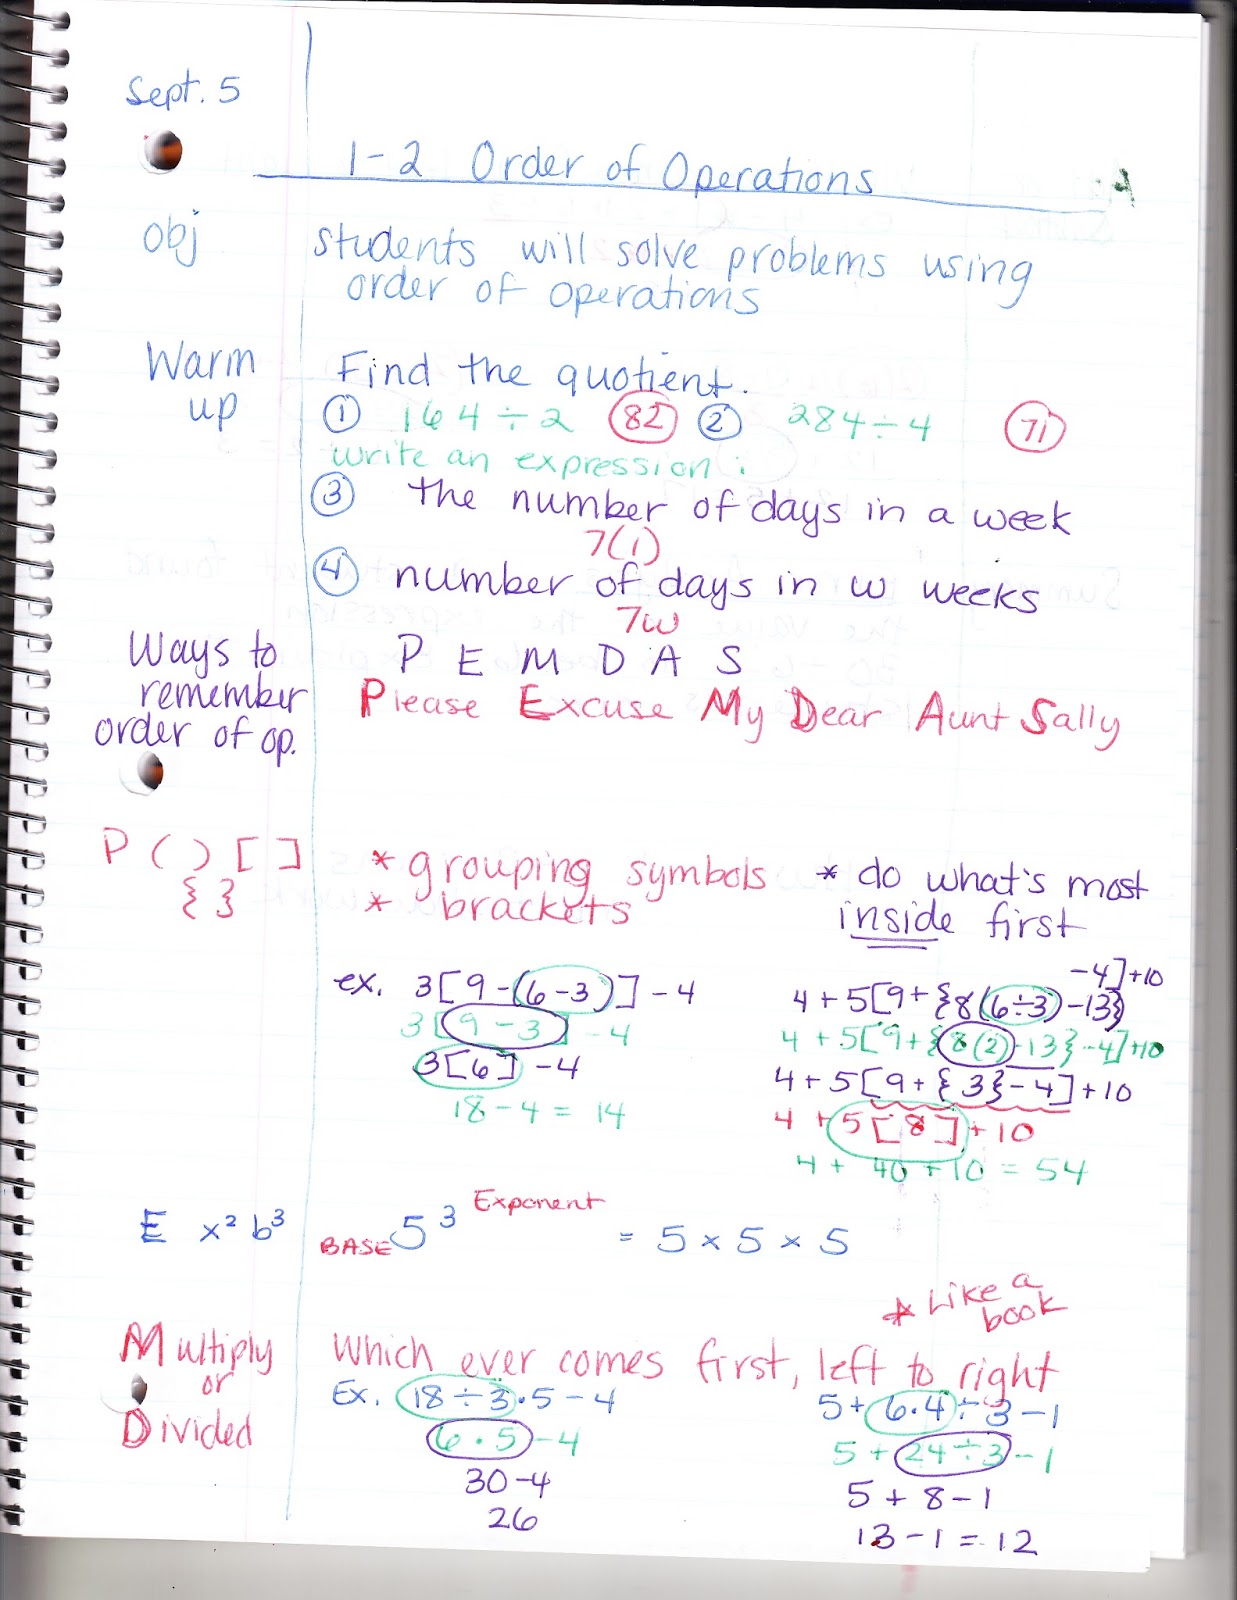 Sept. 5
1-2 Order of Operations
obj students will solve problems using
order of operations
Warm up Find the quotient.
① 164 ÷ 2 82 ② 284 ÷ 4 71
write an expression:
③ the number of days in a week
7(1)
④ number of days in w weeks
7w
Ways to remember order of op. P E M D A S
Please Excuse My Dear Aunt Sally
P ( ) [ ] * grouping symbols * do what's most
{ } * brackets inside first
ex. 3[9-(6-3)] - 4
3[9-3] - 4
3[6] - 4
18 - 4 = 14
4 + 5[9 + {8(6÷3) - 13} - 4] + 10
4 + 5[9 + {8(2) - 13} - 4] + 10
4 + 5[9 + {3} - 4] + 10
4 + 5[8] + 10
4 + 40 + 10 = 54
E x² b³ BASE 5³ Exponent = 5 × 5 × 5
* Like a book
Multiply or Divided Which ever comes first, left to right
Ex. 18 ÷ 3 · 5 - 4
6 · 5 - 4
30 - 4
26
5 + 6 · 4 ÷ 3 - 1
5 + 24 ÷ 3 - 1
5 + 8 - 1
13 - 1 = 12